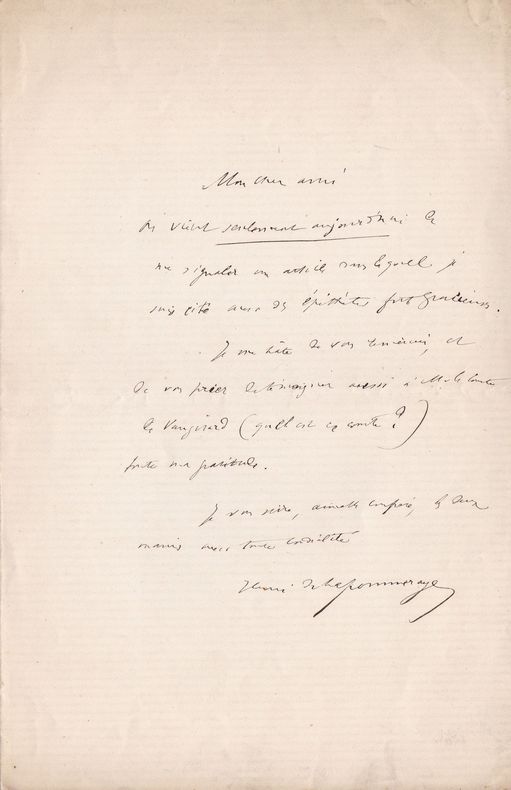 Mon cher ami
On vient seulement aujourd'hui de
me signaler un article dans lequel je
suis cité avec des épithètes fort gracieuses.
Je me hâte de vous remercier, et
de vous prier de témoigner aussi à M. le Comte
de Vaugirard (quel est ce comte ?)
toute ma gratitude.
Je vous serre, aimable confrère, les deux
mains avec toute cordialité
Henri de Lapommeraye